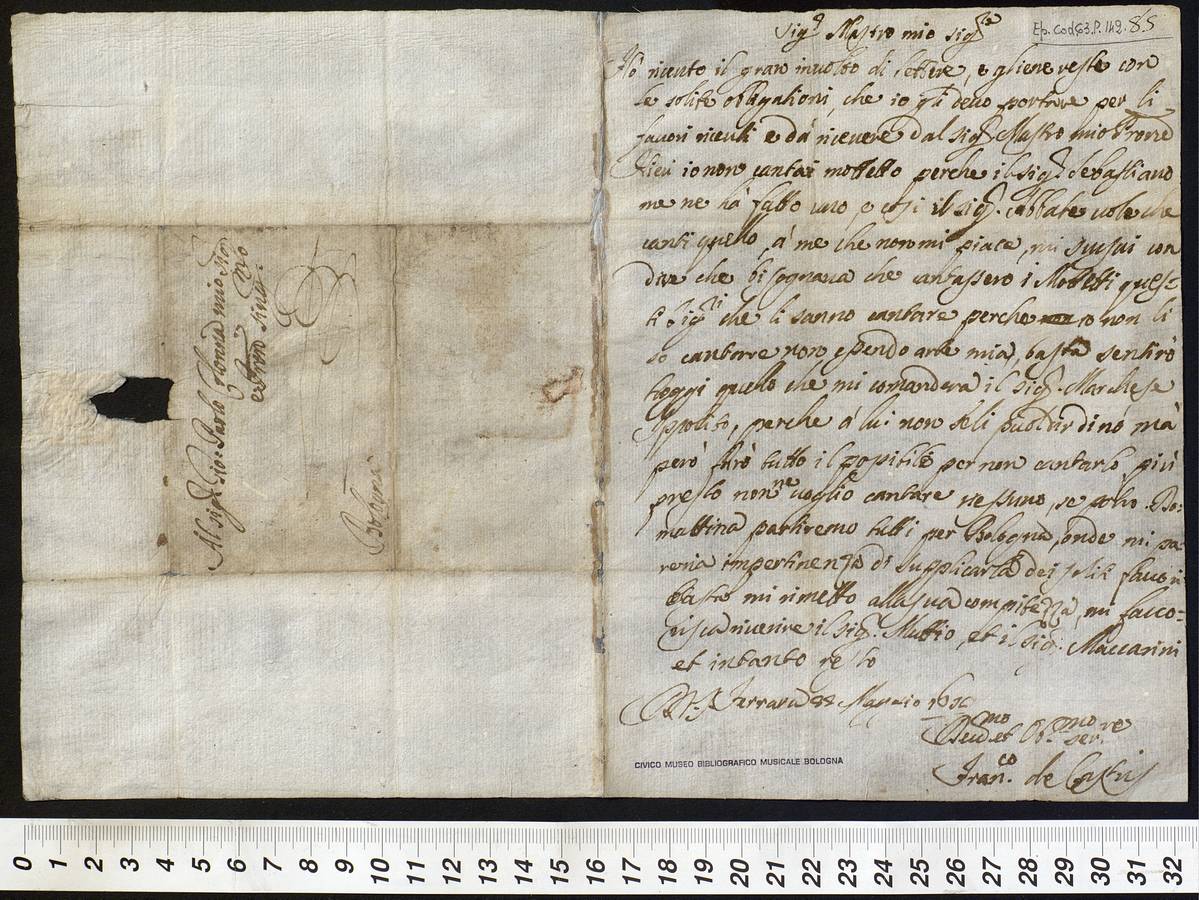 Al Sig.r Gio: Paolo Colonna mio Sig.r
Bologna
Ep. Cod. 63. P. 142. 85
Sig.r Mastro mio Sig.re
Hò riceuto il gran inuolto di lettere, e gliene resto con
le solite obligationi, che io gli deuo portare per li
fauori riceuti e da riceuere dal Sig.r Mastro mio Prone
Hieri io non cantai mottetto perche il Sig.r Sebastiano
me ne hà fatto uno e cosi il Sig.r Abbate uole che
canti quello, à me che non mi piace, mi scusai con
dire che bisognaua che cantassero i Mottetti ques=
ti Sig.ri che li sanno cantare perche io non li
sò cantarre non essendo arte mia, basta sentirò
hoggi quello che mi comanderà il Sig.r Marchese
Ippolito, perche à lui non seli puol dir di nò mà
però farò tutto il possibile per non cantarlo, più
presto non ne uoglio cantare nessuno, se posso. Do=
mattina partiremo tutti per Bologna, onde mi pa=
reria impertinenza di supplicarla dei soliti fauori
basta mi rimetto alla sua compitezza, mi fauo=
risca riuerire il Sig.r Muttio, et il Sig.r Maccarini
et intanto resto
Ferrara Maggio
Deu.mo et Ob.mo ser.re
Fran.co de Castris
CIVICO MUSEO BIBLIOGRAFICO MUSICALE BOLOGNA
0 1 2 3 4 5 6 7 8 9 10 11 12 13 14 15 16 17 18 19 20 21 22 23 24 25 26 27 28 29 30 31 32